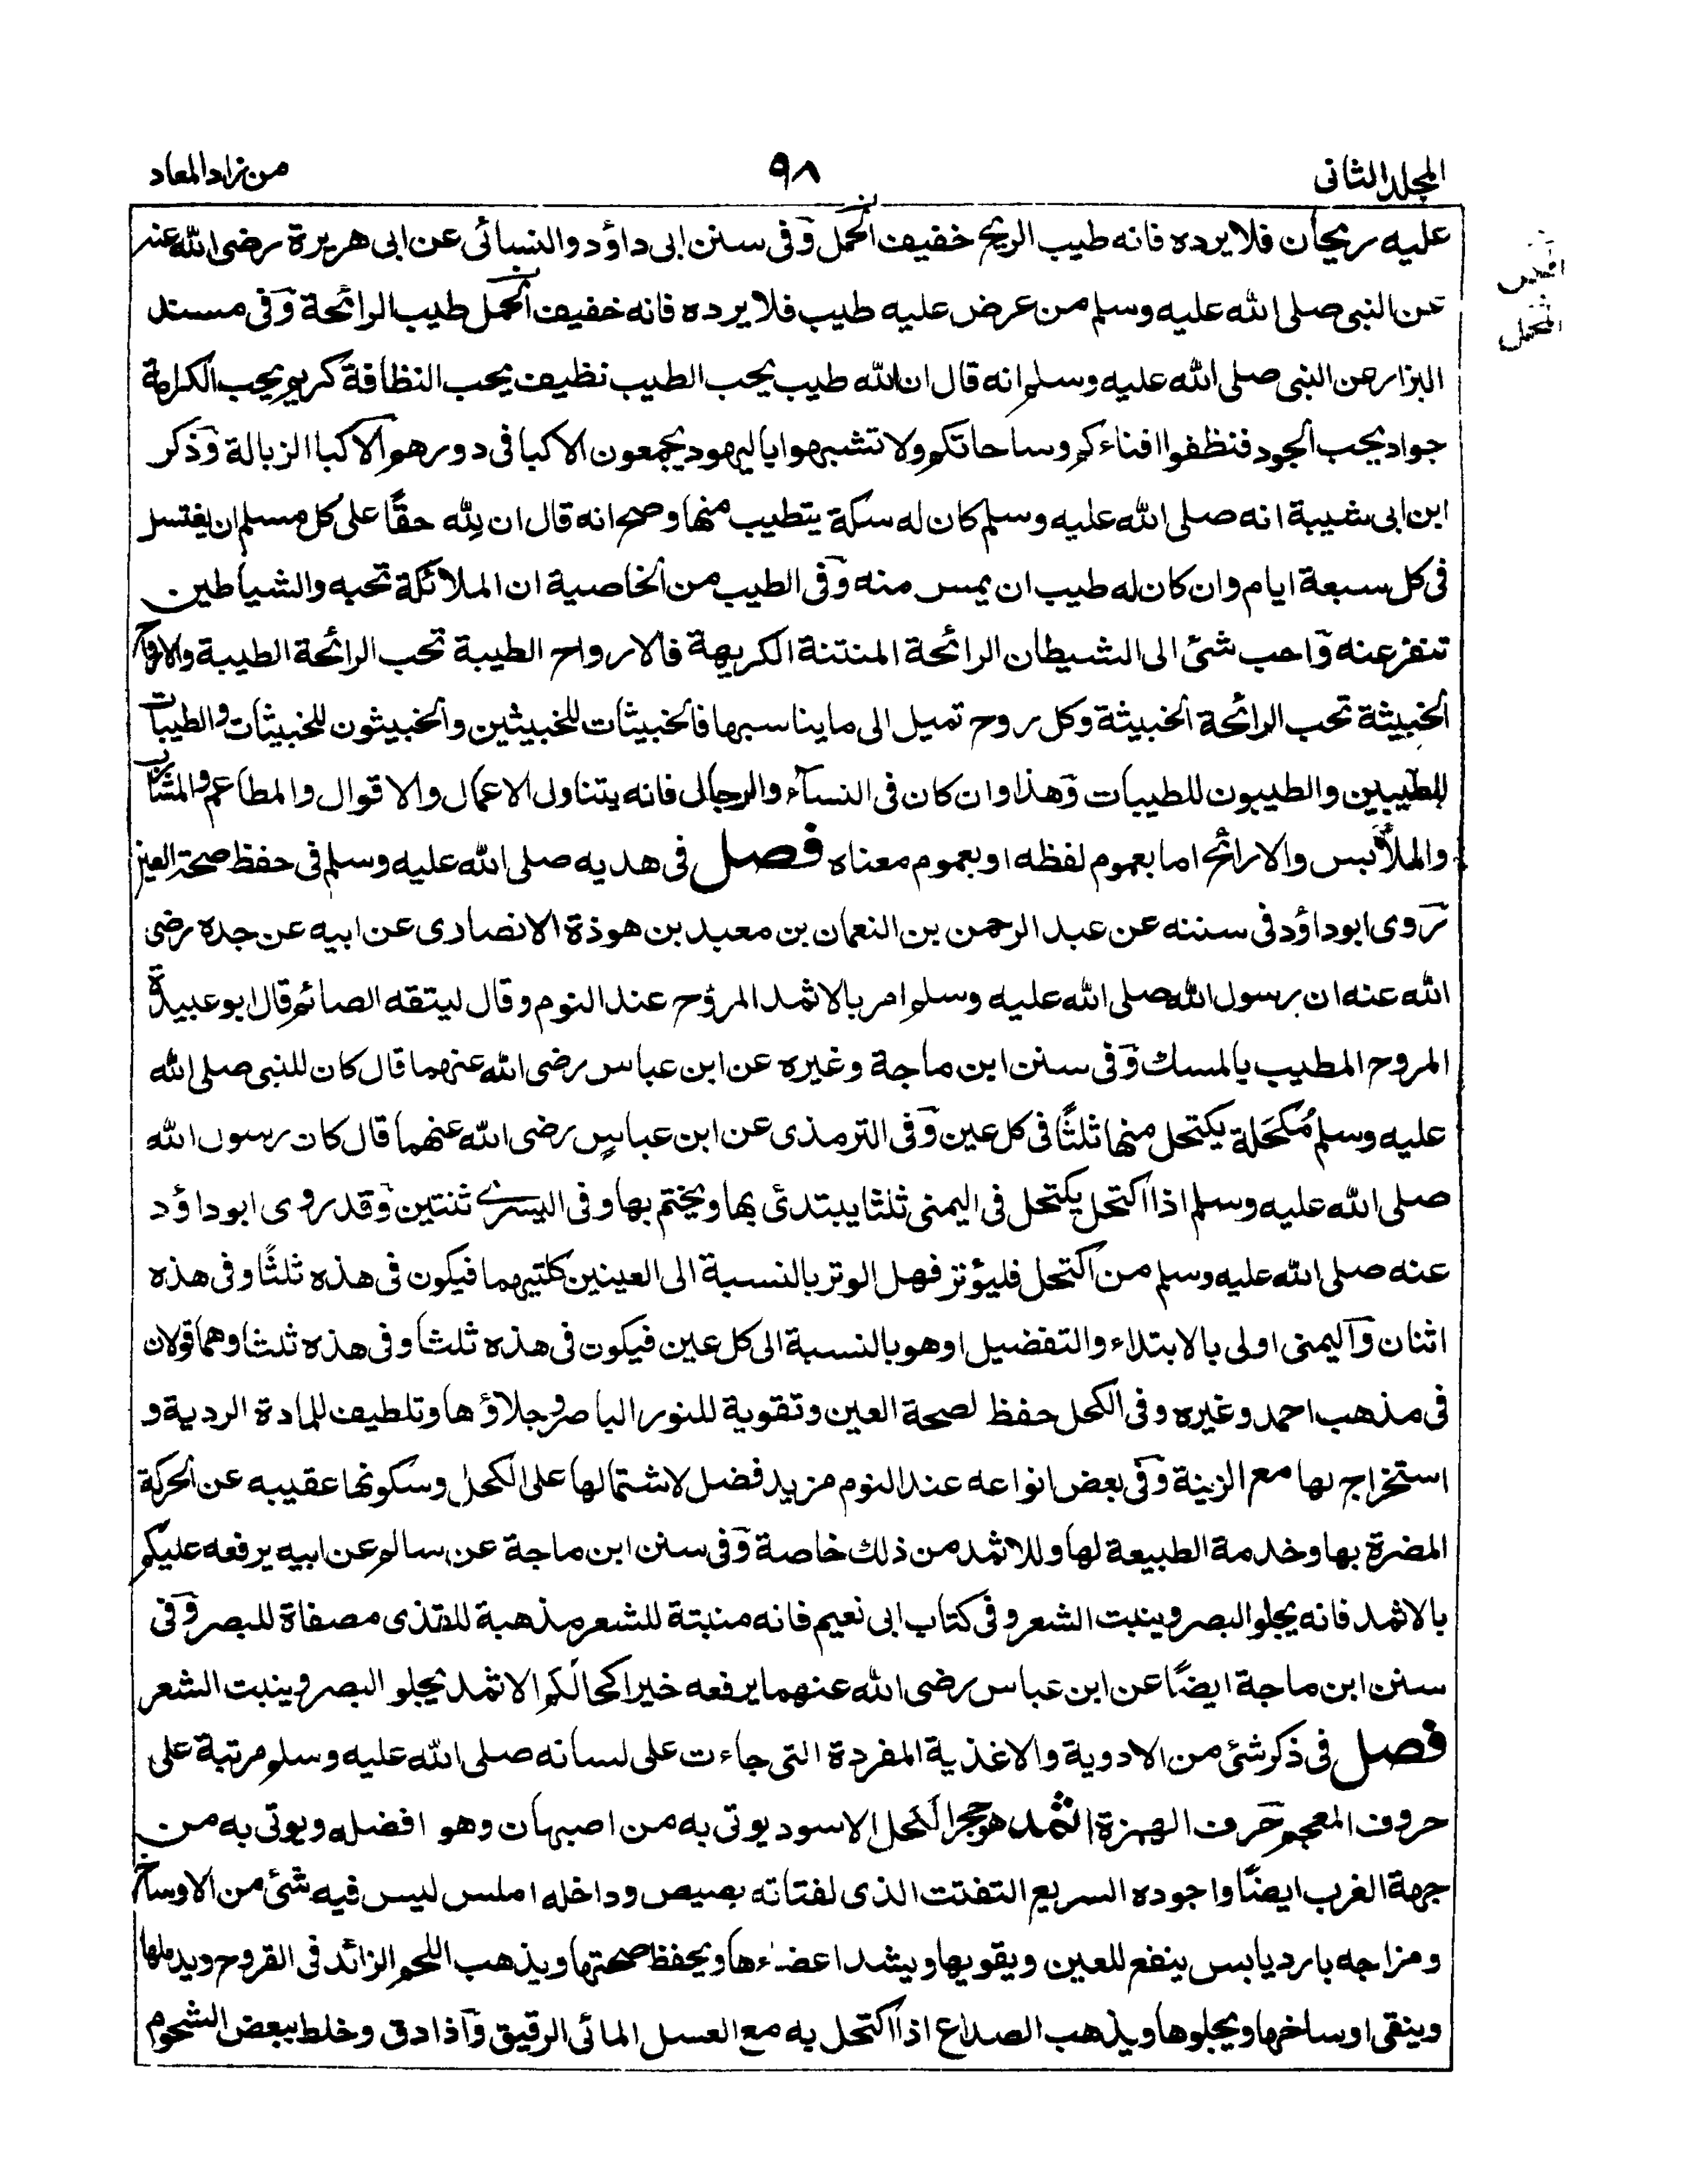 المجلد الثانى
٩٨
من زاد المعاد
عليه ريحان فلا يرده فانه طيب الريح خفيف المحمل وفى سنن ابى داؤد والنسائى عن ابى هريرة رضى الله عنه
عن النبى صلى الله عليه وسلم من عرض عليه طيب فلا يرده فانه خفيف المحمل طيب الرائحة وفى مسند
البزار عن النبى صلى الله عليه وسلم انه قال ان الله طيب يحب الطيب نظيف يحب النظافة كريم يحب الكرامة
جواد يحب الجود فنظفوا افناءكم وساحاتكم ولا تشبهوا باليهود يجمعون الاكبا فى دورهم الاكبا الزبالة وذكر
ابن ابى شيبة انه صلى الله عليه وسلم كان له سكة يتطيب منها وصح انه قال ان لله حقًا على كل مسلم ان يغتسل
فى كل سبعة ايام وان كان له طيب ان يمس منه وفى الطيب من الخاصية ان الملائكة تحبه والشياطين
تنفر عنه واحب شئ الى الشيطان الرائحة المنتنة الكريهة فالارواح الطيبة تحب الرائحة الطيبة والارواح
الخبيثة تحب الرائحة الخبيثة وكل روح تميل الى ما يناسبها فالخبيثات للخبيثين والخبيثون للخبيثات والطيبات
للطيبين والطيبون للطيبات وهذا وان كان فى النسآء والرجال فانه يتناول الاعمال والاقوال والمطاعم والمشارب
والملابس والارائح اما بعموم لفظه او بعموم معناه فصل فى هديه صلى الله عليه وسلم فى حفظ صحة العين
روى ابو داؤد فى سننه عن عبد الرحمن بن النعمان بن معبد بن هوذة الانصارى عن ابيه عن جده رضى
الله عنه ان رسول الله صلى الله عليه وسلم امر بالاثمد المروح عند النوم وقال ليتقه الصائم قال ابو عبيدة
المروح المطيب بالمسك وفى سنن ابن ماجة وغيره عن ابن عباس رضى الله عنهما قال كان للنبى صلى الله
عليه وسلم مُكحَلة يكتحل منها ثلثًا فى كل عين وفى الترمذى عن ابن عباس رضى الله عنهما قال كان رسول الله
صلى الله عليه وسلم اذا اكتحل يكتحل فى اليمنى ثلثا يبتدئ بها ويختم بها وفى اليسرى ثنتين وقد روى ابو داؤد
عنه صلى الله عليه وسلم من اكتحل فليؤتر فهل الوتر بالنسبة الى العينين كلتيهما فيكون فى هذه ثلثًا وفى هذه
اثنان واليمنى اولى بالابتداء والتفضيل او هو بالنسبة الى كل عين فيكون فى هذه ثلثا وفى هذه ثلثا وهما قولان
فى مذهب احمد وغيره وفى الكحل حفظ لصحة العين وتقوية للنور الباصر وجلاؤها وتلطيف للمادة الردية و
استخراج لها مع الزينة وفى بعض انواعه عند النوم مزيد فضل لاشتمالها على الكحل وسكونها عقيبه عن الحركة
المضرة بها وخدمة الطبيعة لها وللاثمد من ذلك خاصة وفى سنن ابن ماجة عن سالم عن ابيه يرفعه عليكم
بالاثمد فانه يجلو البصر وينبت الشعر وفى كتاب ابى نعيم فانه منبتة للشعر مذهبة للقذى مصفاة للبصر وفى
سنن ابن ماجة ايضًا عن ابن عباس رضى الله عنهما يرفعه خير اكحالكم الاثمد يجلو البصر وينبت الشعر
فصل فى ذكر شئ من الادوية والاغذية المفردة التى جاءت على لسانه صلى الله عليه وسلم مرتبة على
حروف المعجم حرف الهمزة اثمد هو حجر الكحل الاسود يوتى به من اصبهان وهو افضله ويوتى به من
جهة الغرب ايضًا واجوده السريع التفتت الذى لفتاته بصيص وداخله املس ليس فيه شئ من الاوساخ
ومزاجه بارد يابس ينفع للعين ويقويها ويشد اعضاءها ويحفظ صحتها ويذهب اللحم الزائد فى القروح ويدملها
وينقى اوساخها ويجلوها ويذهب الصداع اذا اكتحل به مع العسل المائى الرقيق واذا دق وخلط ببعض الشحوم